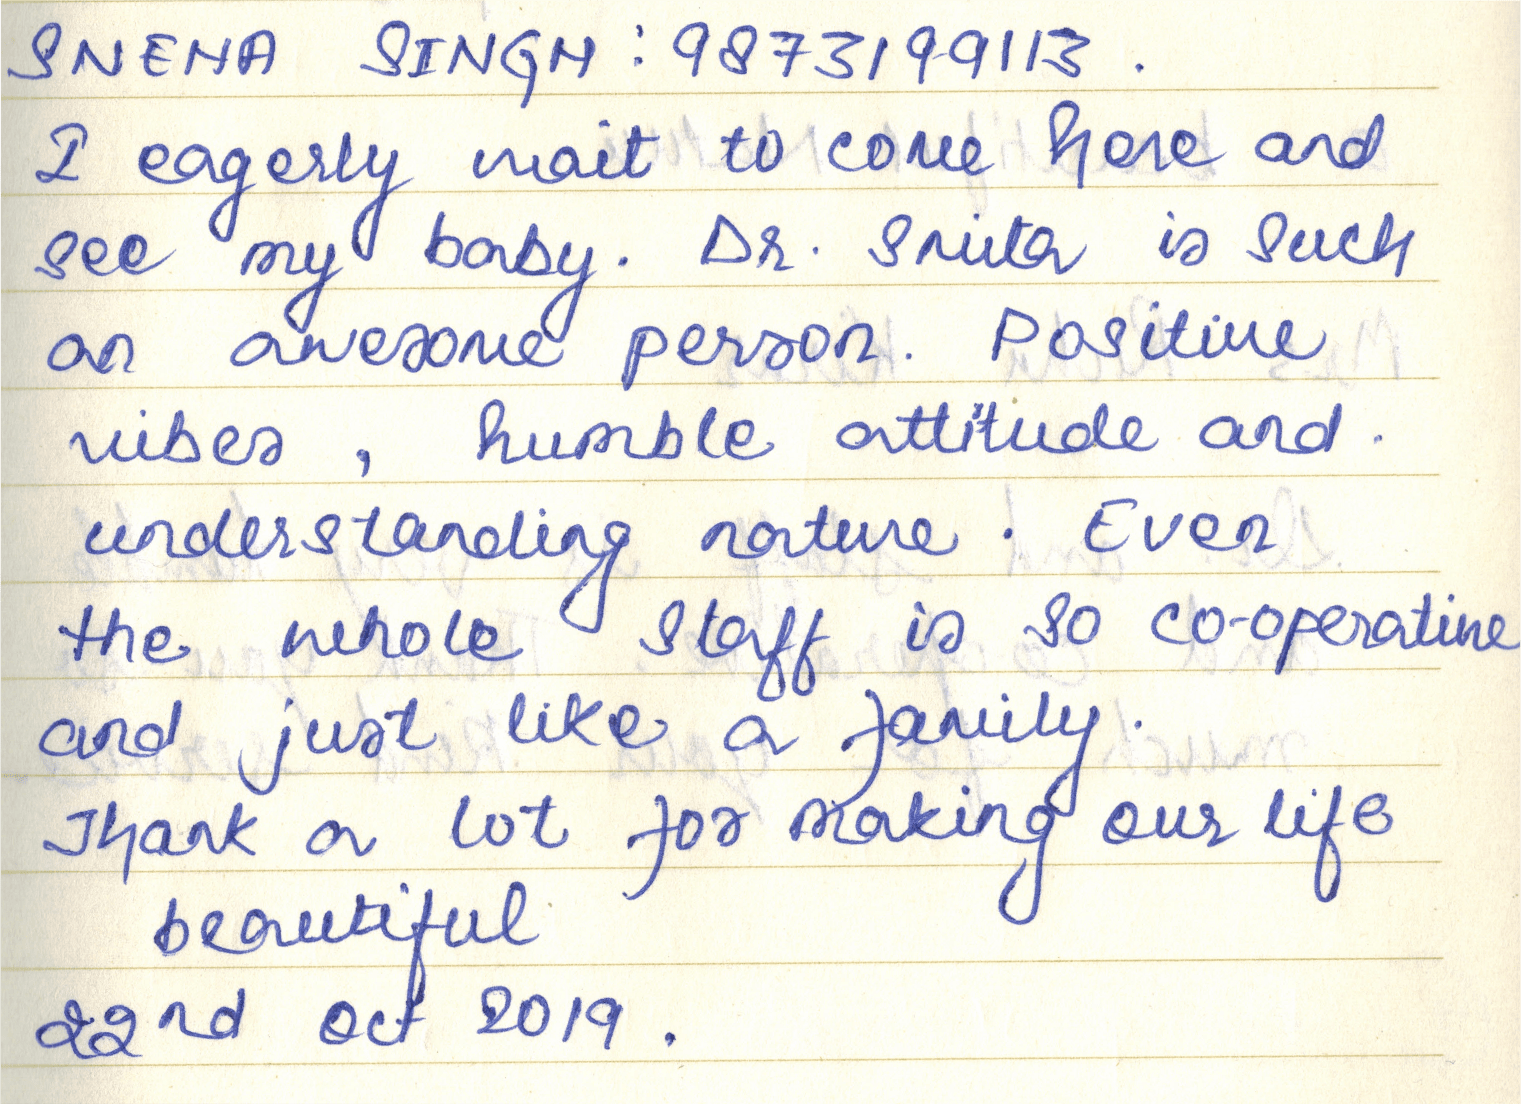 SNEHA SINGH : 9873199113 .
I eagerly wait to come here and
see my baby. Dr. Smita is such
an awesome person. Positive
vibes , humble attitude and .
understanding nature . Even
the whole staff is so co-operative
and just like a family .
Thank a lot for making our life
beautiful
22nd Oct 2019 .